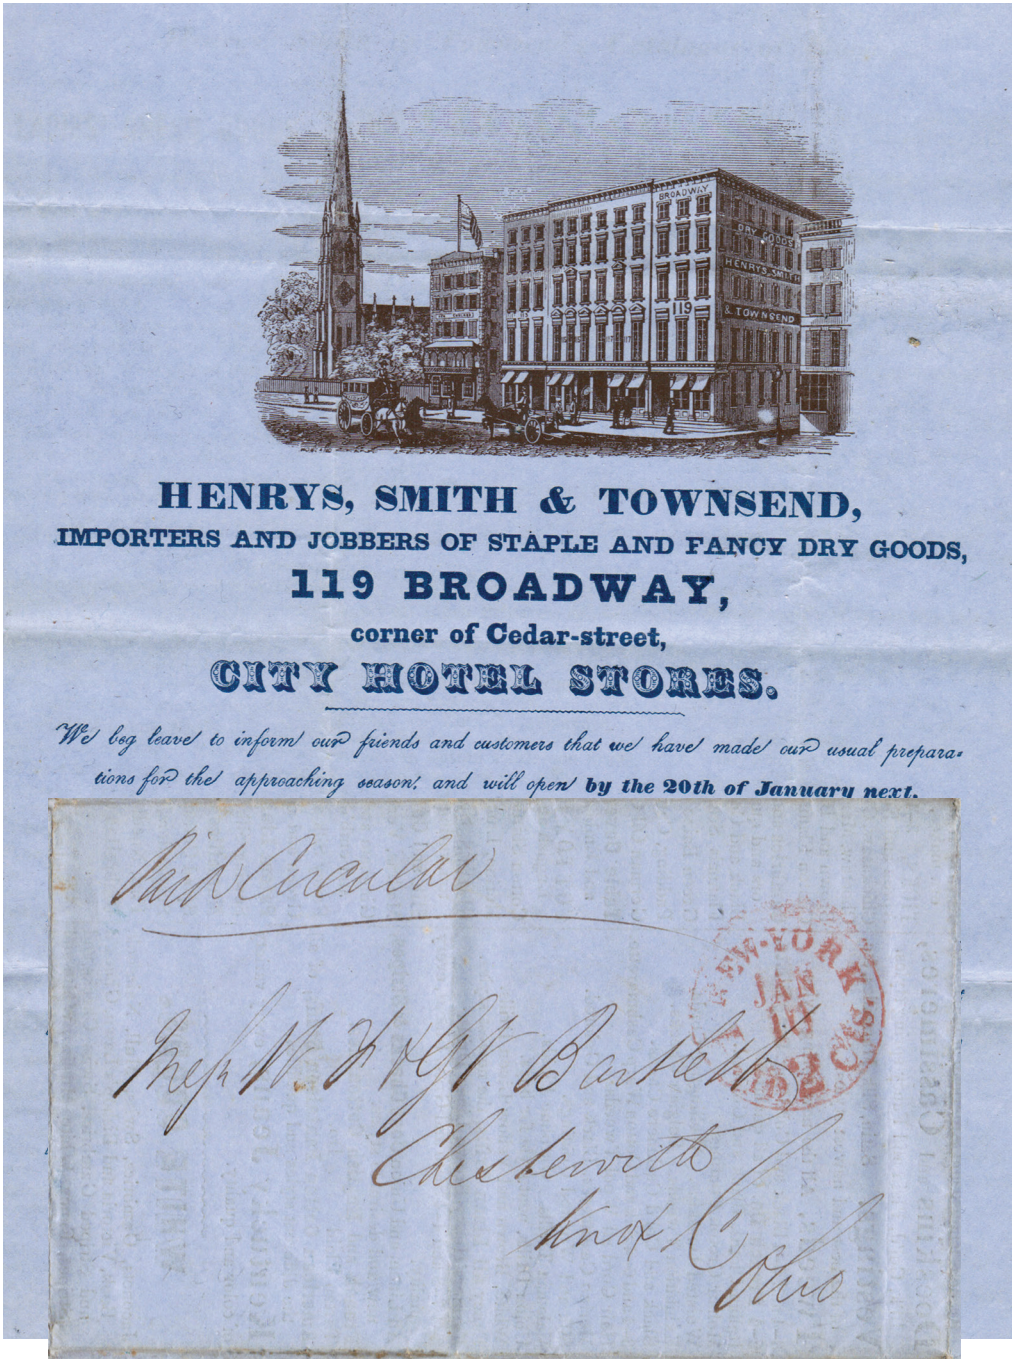 BROADWAY.
DRY GOODS
HENRYS, SMITH
& TOWNSEND
119
HENRYS, SMITH & TOWNSEND,
IMPORTERS AND JOBBERS OF STAPLE AND FANCY DRY GOODS,
119 BROADWAY,
corner of Cedar-street,
CITY HOTEL STORES.
We beg leave to inform our friends and customers that we have made our usual prepara-
tions for the approaching season, and will open by the 20th of January next.
Paid Circular
NEW-YORK
JAN
10
2 Cts
Mess W. F & G W. Bartlett
Chesterville
Knox C
Ohio